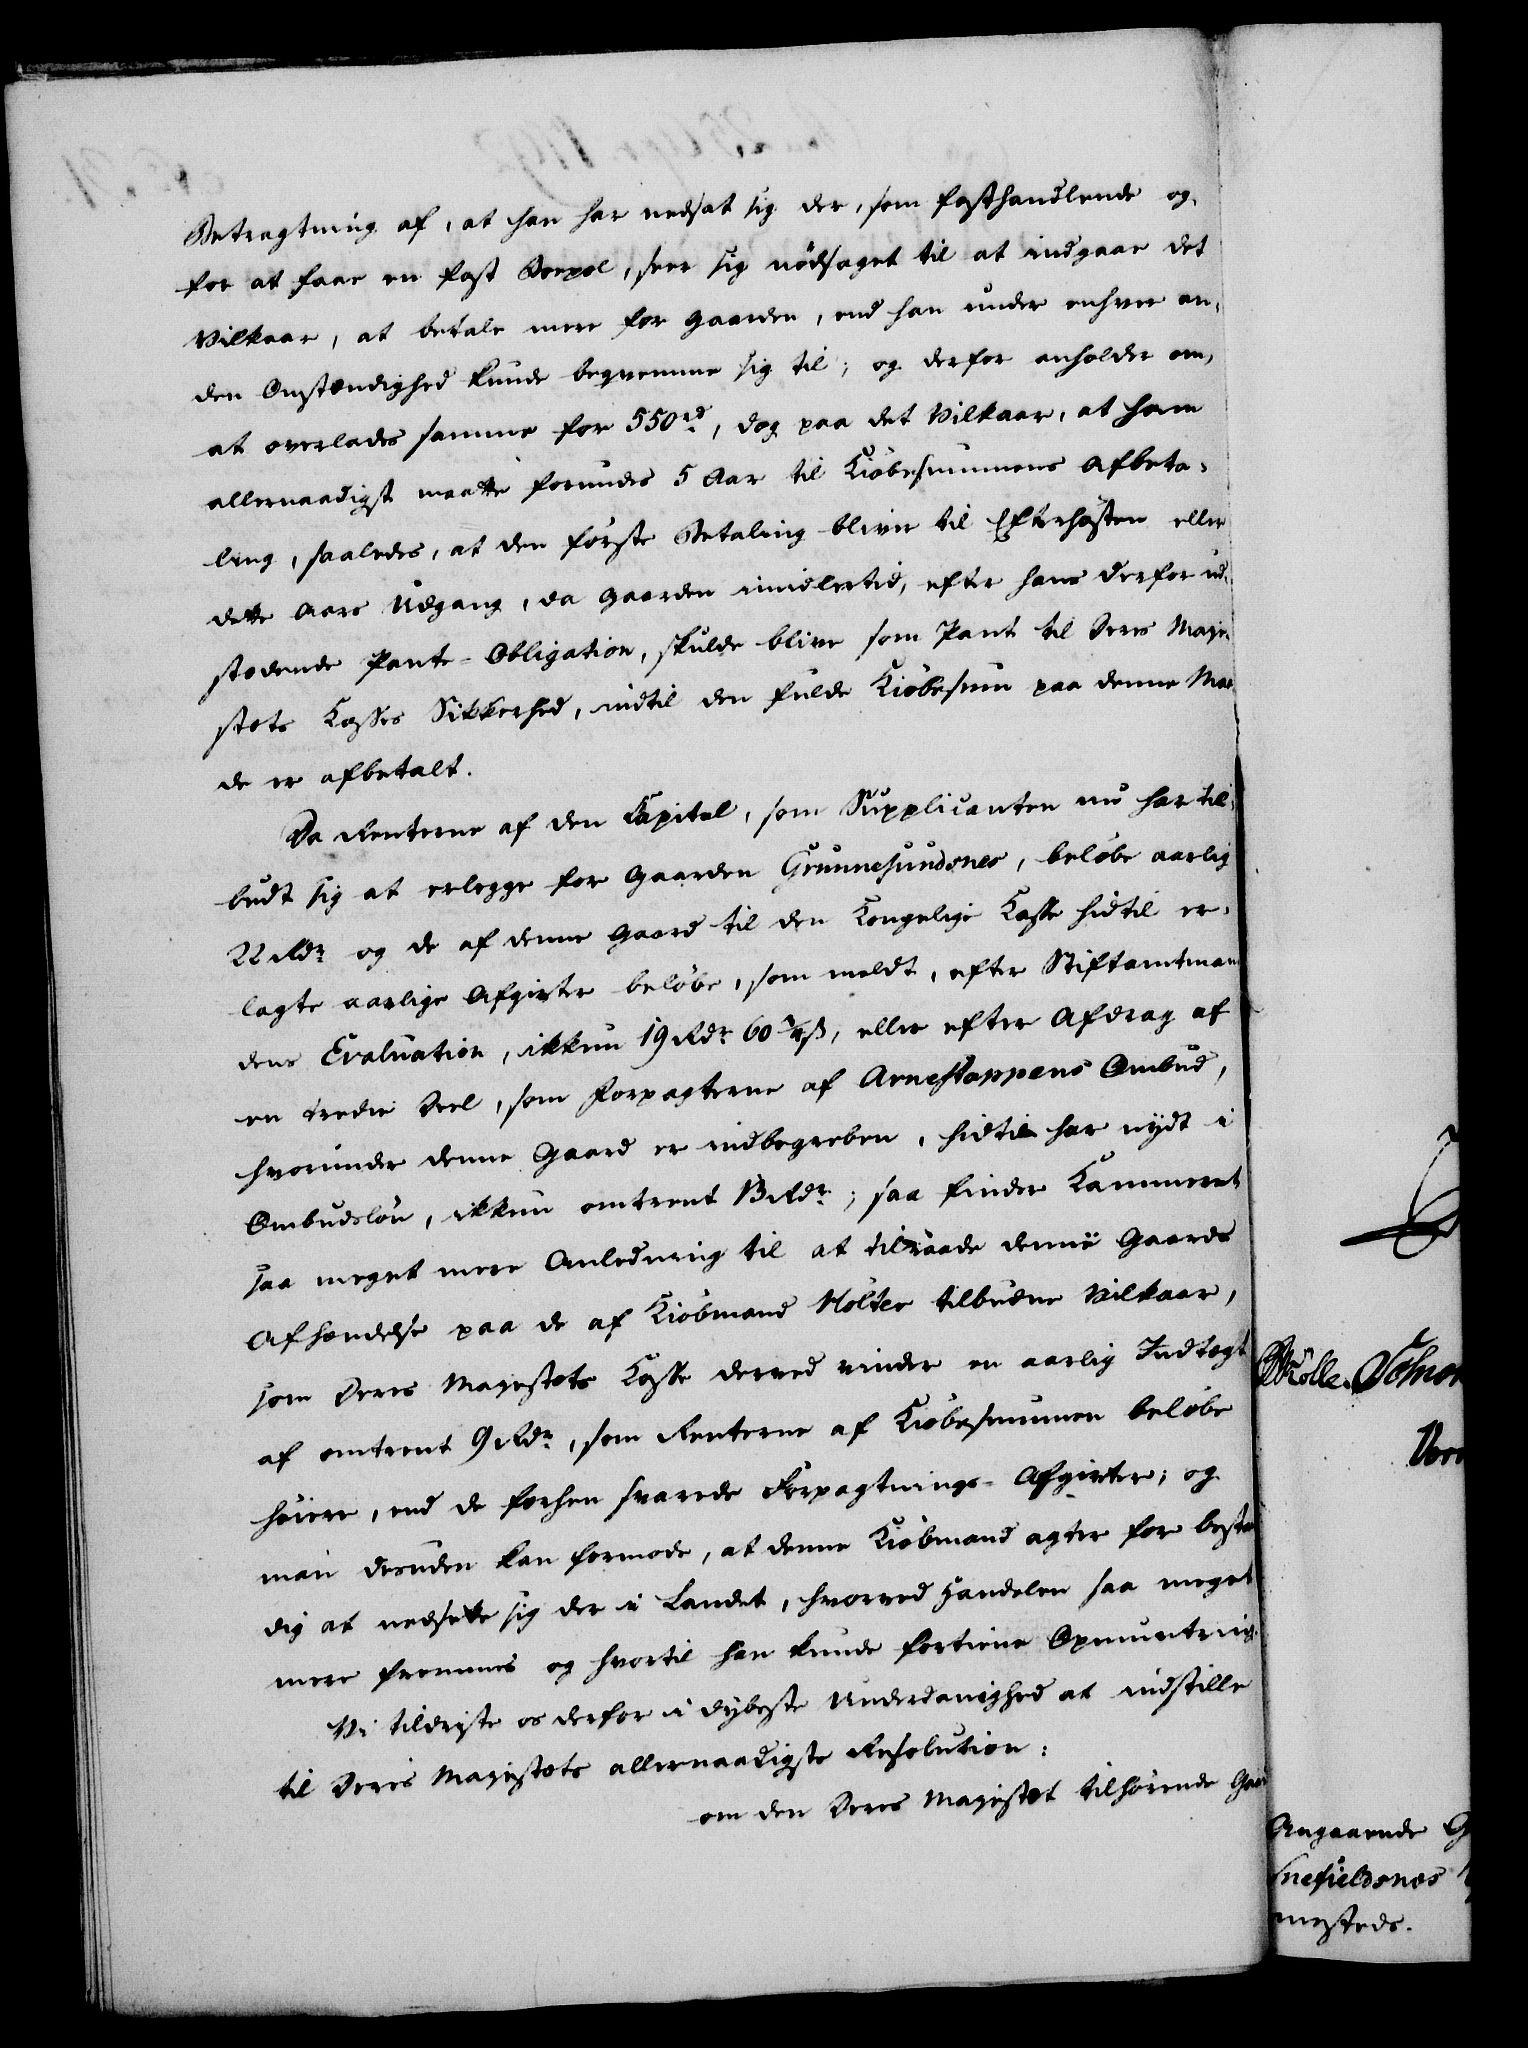 Betragtning af, at han har nedsat sig der, som fasthandlende og,
for at faae en fast Boepæl, seer sig nödsaget til at indgaae det
Vilkaar, at betale mere for Gaarden, end han under enhver an-
den Omstændighed kunde beqvemme sig til; og derfor anholder om,
at overlades samme for 550 rd, dog paa det Vilkaar, at ham
allernaadigst maatte forundes 5 Aar til Kiöbesummens Afbeta-
ling, saaledes, at den förste Betaling bliver til Efterhösten eller
dette Aars Udgang, da Gaarden imidlertid, efter hans derfor ud-
stædende Pante-Obligation, skulde blive som Pant til Deres Maje-
stæts Casses Sikkerhed, indtil den fulde Kiöbesum paa denne Maa-
de er afbetalt.
Da Renterne af den Capital, som Supplicanten nu har til-
budt sig at erlegge for Gaarden Grunnesundsnes, beløbe aarlig
22 Rdr og de af denne Gaard til den Kongelige Casse hidtil er-
lagte aarlige Afgivter beløbe, som meldt, efter Stiftamtman-
dens Evaluation, ikkun 19 Rdr 60 3/4 ß, eller efter Afdrag af
en tredie Deel, som Forpagterne af Arnestappens Ombud,
hvorunder denne Gaard er indbegreben, hidtil har nydt i
Ombudslön, ikkun omtrent 13 Rdr; saa finder Kammeret
saa meget mere Anledning til at tilraade denne Gaards
Afhændelse paa de af Kiöbmand Holter tilbudne Vilkaar,
som Deres Majestæts Casse derved vinder en aarlig Indtægt
af omtrent 9 Rdr, som Renterne af Kiöbesummen beløbe
höiere, end de forhen svarede Forpagtnings-Afgivter; og
man desuden kan formode, at denne Kiöbmand agter for bestan-
dig at nedsette sig der i Landet, hvorved Handelen saa meget
mere fremmes og hvortil han kunde fortiene Opmuntring.
Vi tildriste os derfor i dybeste Underdanighed at indstille
til Deres Majestæts allernaadigste Resolution:
om den Deres Majestæt tilhörende Gaar
Angaaende G
Snefieldsnes
mesteds.